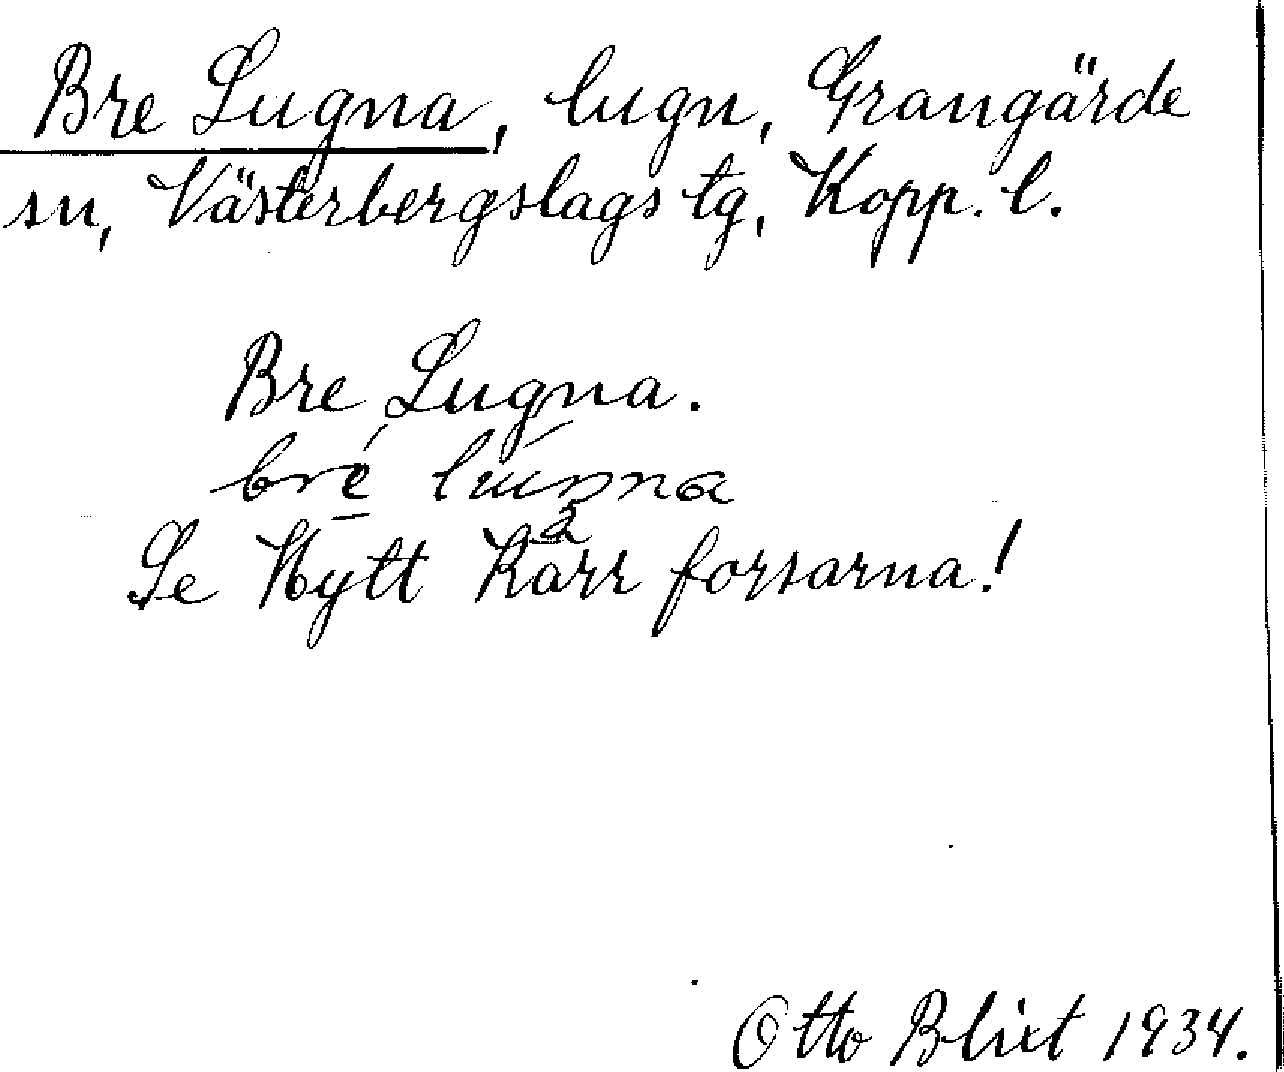 Bre Lugna, lugn, Grangärde
sn, Västerbergslags tg, Kopp. l.
Bre Lugna.
bré
Se Nytt Kärr forsarna!
Otto Blixt 1934.